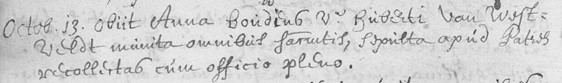 Octob. 13. obiit Anna boudens Vx. Huberti Van West=
Veldt munita omnibus sacrtis, sepulta apud Patres
recollectas cum officio pleno.